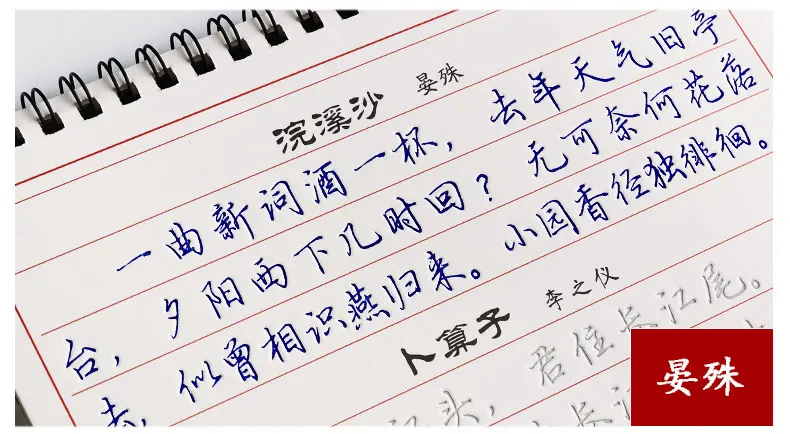 浣溪沙 晏殊
一曲新词酒一杯，去年天气旧亭
台，夕阳西下几时回？无可奈何花落
去，似曾相识燕归来。小园香径独徘徊。
卜算子 李之仪
君住长江尾。
江头，
长江
晏殊